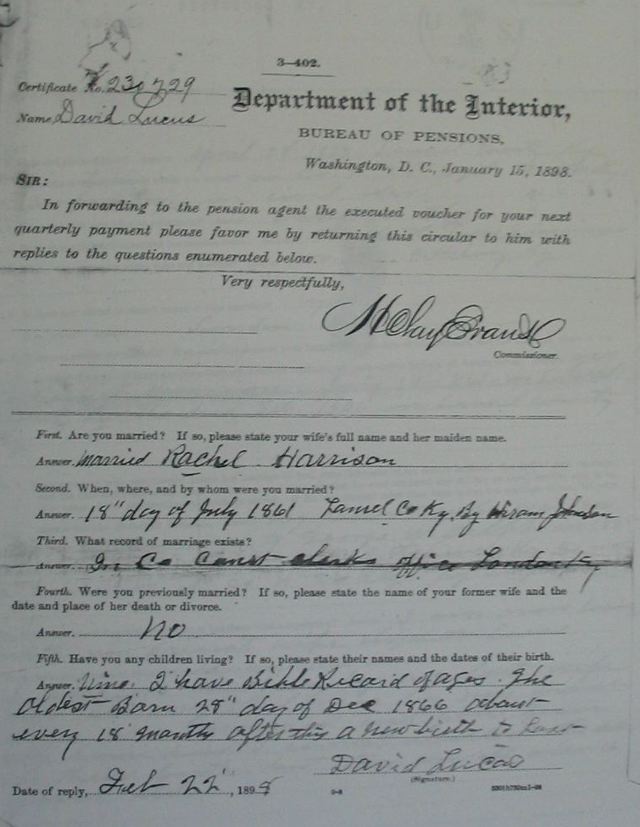 3—402.
Certificate No. 230,729
Department of the Interior,
Name, David Lucus
BUREAU OF PENSIONS,
Washington, D. C., January 15, 1898.
SIR:
In forwarding to the pension agent the executed voucher for your next
quarterly payment please favor me by returning this circular to him with
replies to the questions enumerated below.
Very respectfully,
H Clay Evans
Commissioner.
First. Are you married? If so, please state your wife's full name and her maiden name.
Answer. Married Rachel Harrison
Second. When, where, and by whom were you married?
Answer. 18" day of July 1861 Laurel Co Ky. By Hiram Johnson
Third. What record of marriage exists?
Answer. In Co Court clerks office London Ky
Fourth. Were you previously married? If so, please state the name of your former wife and the
date and place of her death or divorce.
Answer. No
Fifth. Have you any children living? If so, please state their names and the dates of their birth.
Answer. Nine. I have Bible Record of ages. The
oldest Born 28" day of Dec 1866 about
every 18 months after this a new birth to
David Lucas
(Signature.)
Date of reply, Feb 22, 1898